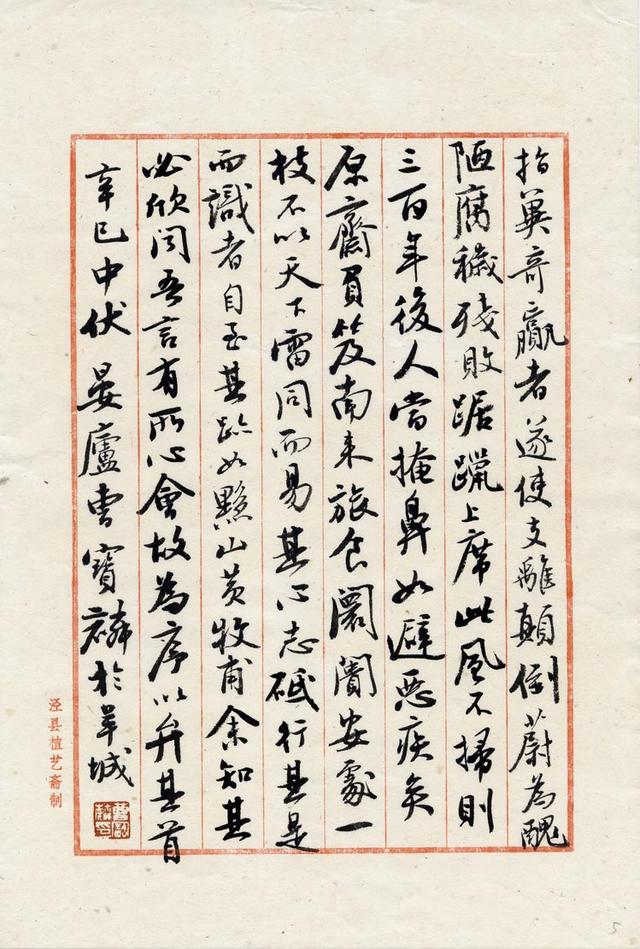 指冀奇贏者遂使支離顛倒蔚為醜
陋腐穢殘敗踞躐上席此風不掃則
三百年後人當掩鼻如避惡疾矣
原齋負笈南来旅食闤闠安處一
枝不以天下雷同而易其心志砥行其是
而識者自至其跡如黟山黃牧甫余知其
必欣闻吾言有所心會故為序以弁其首
辛巳中伏晏廬曹寶麟於羊城
泾县植艺斋制
5